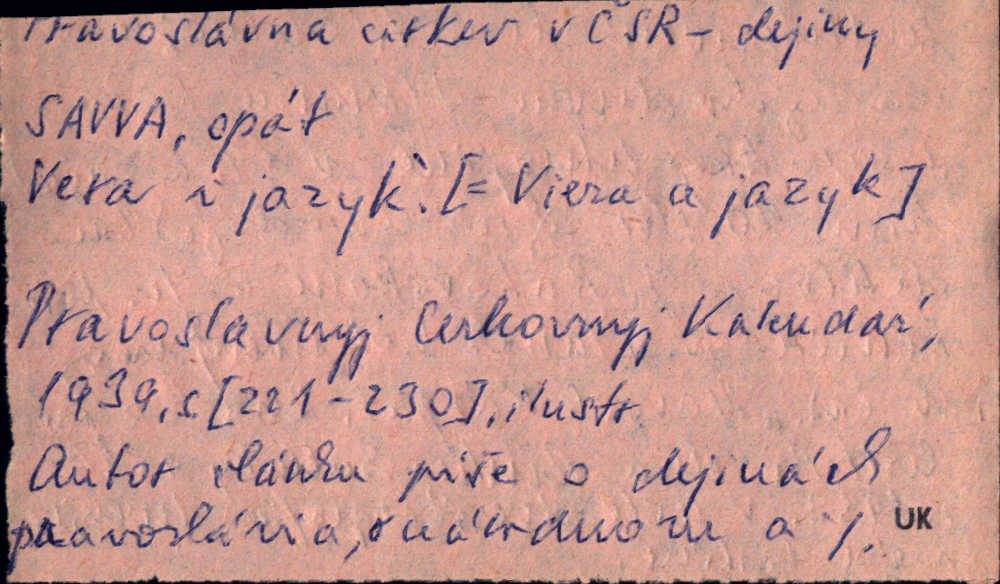 Pravoslávna cirkev v ČSR - dejiny
SAVVA, opát
Vera i jazyk. [= Viera a jazyk]
Pravoslavnyj Cerkovnyj Kalendar',
1939, s [221-230], ilustr.
Autor článku píše o dejinách
pravoslávia, o národnom a j.
UK